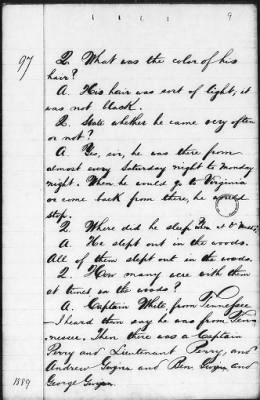 9
97
Q. What was the color of his
hair?
A. His hair was sort of light, it
was not black.
Q. State whether he came very often
or not?
A. Yes, sir, he was there from
almost every Saturday night to Monday
night. When he would go to Virginia
or come back from there, he would
stop.
Q. Where did he sleep
A. He slept out in the woods.
All of them slept out in the woods.
Q. How many were with them
at times in the woods?
A. Captain White, from Tennessee
I heard them say he was from Tenn
nessee. Then there was a Captain
Perry and Lieutenant Perry, and
Andrew and Ben and
1889
George